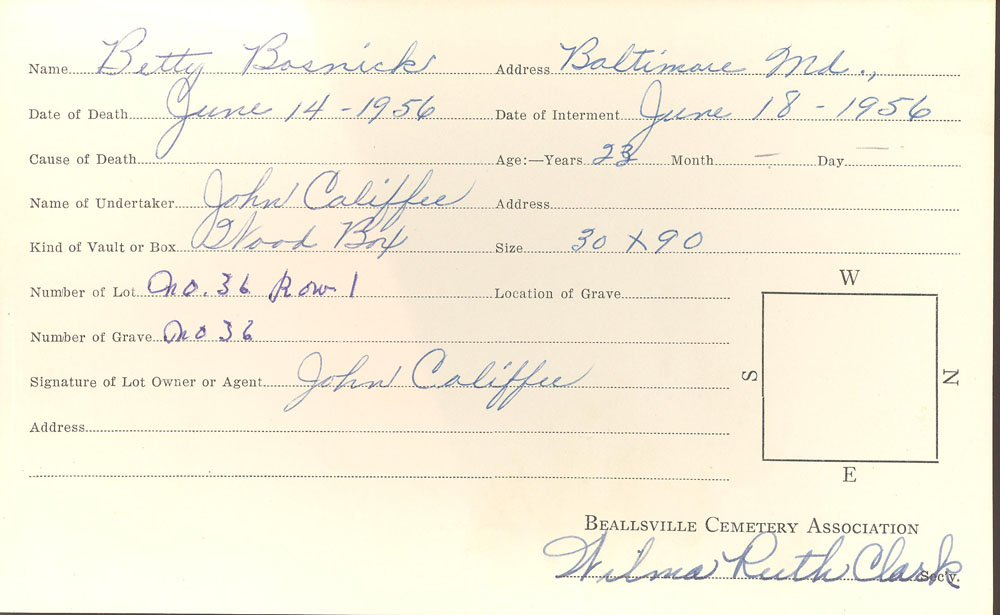 Name Betty Bosnick Address Baltimore Md.,
Date of Death June 14 - 1956 Date of Interment June 18 - 1956
Cause of Death Age:—Years 23 Month — Day —
Name of Undertaker John Califfee Address
Kind of Vault or Box Wood Box Size 30 X 90
Number of Lot No. 36 Row 1 Location of Grave
W
Number of Grave No 36
S N
Signature of Lot Owner or Agent John Califfee
Address
E
BEALLSVILLE CEMETERY ASSOCIATION
Wilma Ruth Clark Sec'y.